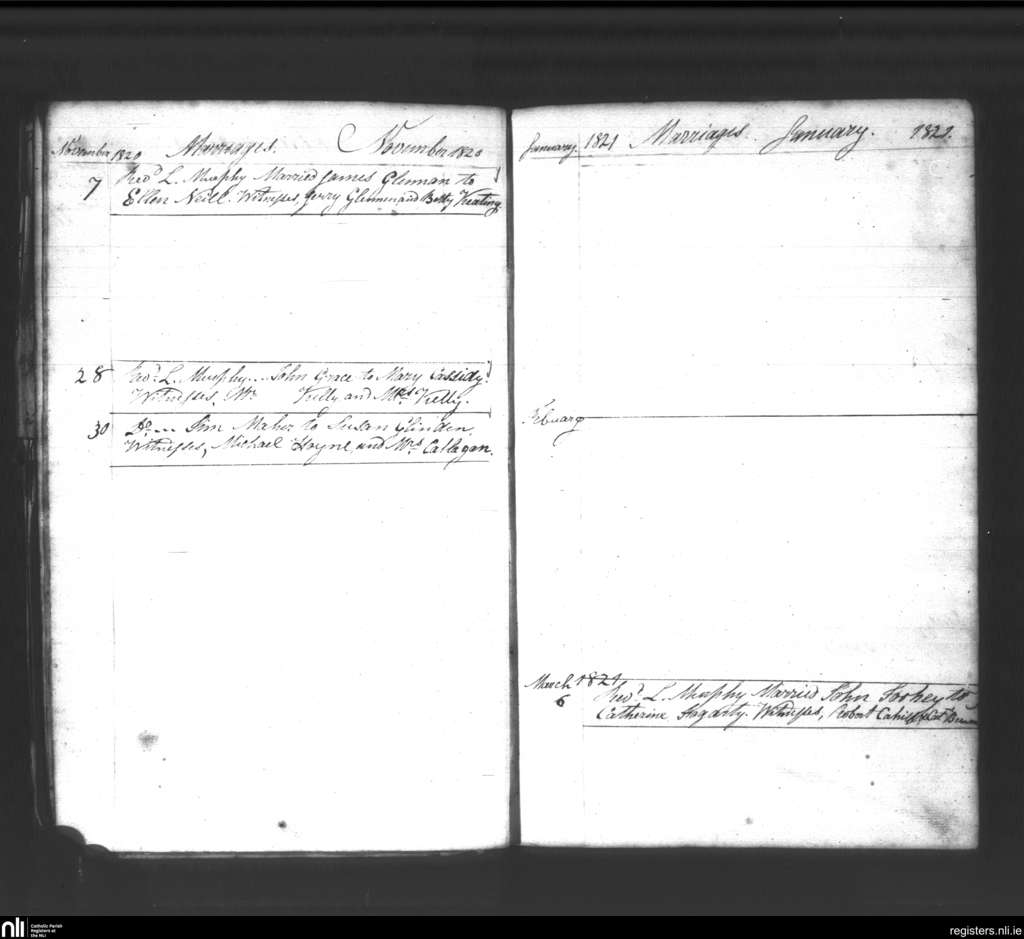 November 1820 Marriages. November 1820
7 Revd. L. Murphy Married James Glennan to
Ellen Neill. Witnesses, Jerry Glennen and Betty Keating
28 Revd. L. Murphy... John Grace to Mary Cassidy.
Witnesses, Mr. Kelly and Mrs. Kelly.
30 Do... Jim Maher to Susan Clinden,
Witnesses, Michael Hoyne, and Mrs. Callagan.
January. 1821 Marriages. January. 1821.
Febuary
March 1821
6 Revd. L. Murphy Married John Toohey to
Catherine Fogarty. Witnesses, Robert Cahill
nli Catholic Parish
Registers at
the NLI
registers.nli.ie